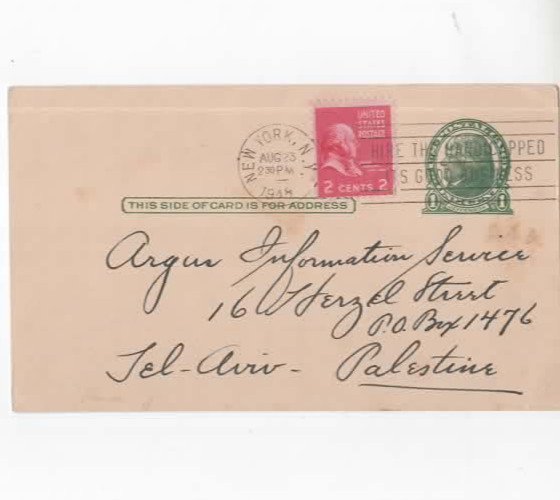 UNITED
STATES
POSTAGE
2 CENTS 2
NEW YORK, N.Y.
AUG 23
2 30 PM
1948
HIRE THE HANDICAPPED
IT'S GOOD BUSINESS
1 1
THIS SIDE OF CARD IS FOR ADDRESS
Argus Information Service
16 Herzel Street
P.O. Box 1476
Tel-Aviv - Palestine